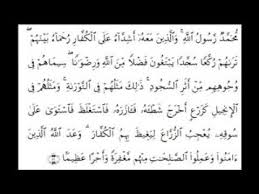 مُّحَمَّدٌ رَّسُولُ ٱللَّهِ ۚ وَٱلَّذِينَ مَعَهُۥٓ أَشِدَّآءُ عَلَى ٱلْكُفَّارِ رُحَمَآءُ بَيْنَهُمْ ۖ
تَرَىٰهُمْ رُكَّعًا سُجَّدًا يَبْتَغُونَ فَضْلًا مِّنَ ٱللَّهِ وَرِضْوَٰنًا ۖ سِيمَاهُمْ فِى
وُجُوهِهِم مِّنْ أَثَرِ ٱلسُّجُودِ ۚ ذَٰلِكَ مَثَلُهُمْ فِى ٱلتَّوْرَىٰةِ ۚ وَمَثَلُهُمْ فِى
ٱلْإِنجِيلِ كَزَرْعٍ أَخْرَجَ شَطْـَٔهُۥ فَـَٔازَرَهُۥ فَٱسْتَغْلَظَ فَٱسْتَوَىٰ عَلَىٰ
سُوقِهِۦ يُعْجِبُ ٱلزُّرَّاعَ لِيَغِيظَ بِهِمُ ٱلْكُفَّارَ ۗ وَعَدَ ٱللَّهُ ٱلَّذِينَ
ءَامَنُوا۟ وَعَمِلُوا۟ ٱلصَّٰلِحَٰتِ مِنْهُم مَّغْفِرَةً وَأَجْرًا عَظِيمًۢا ٢٩